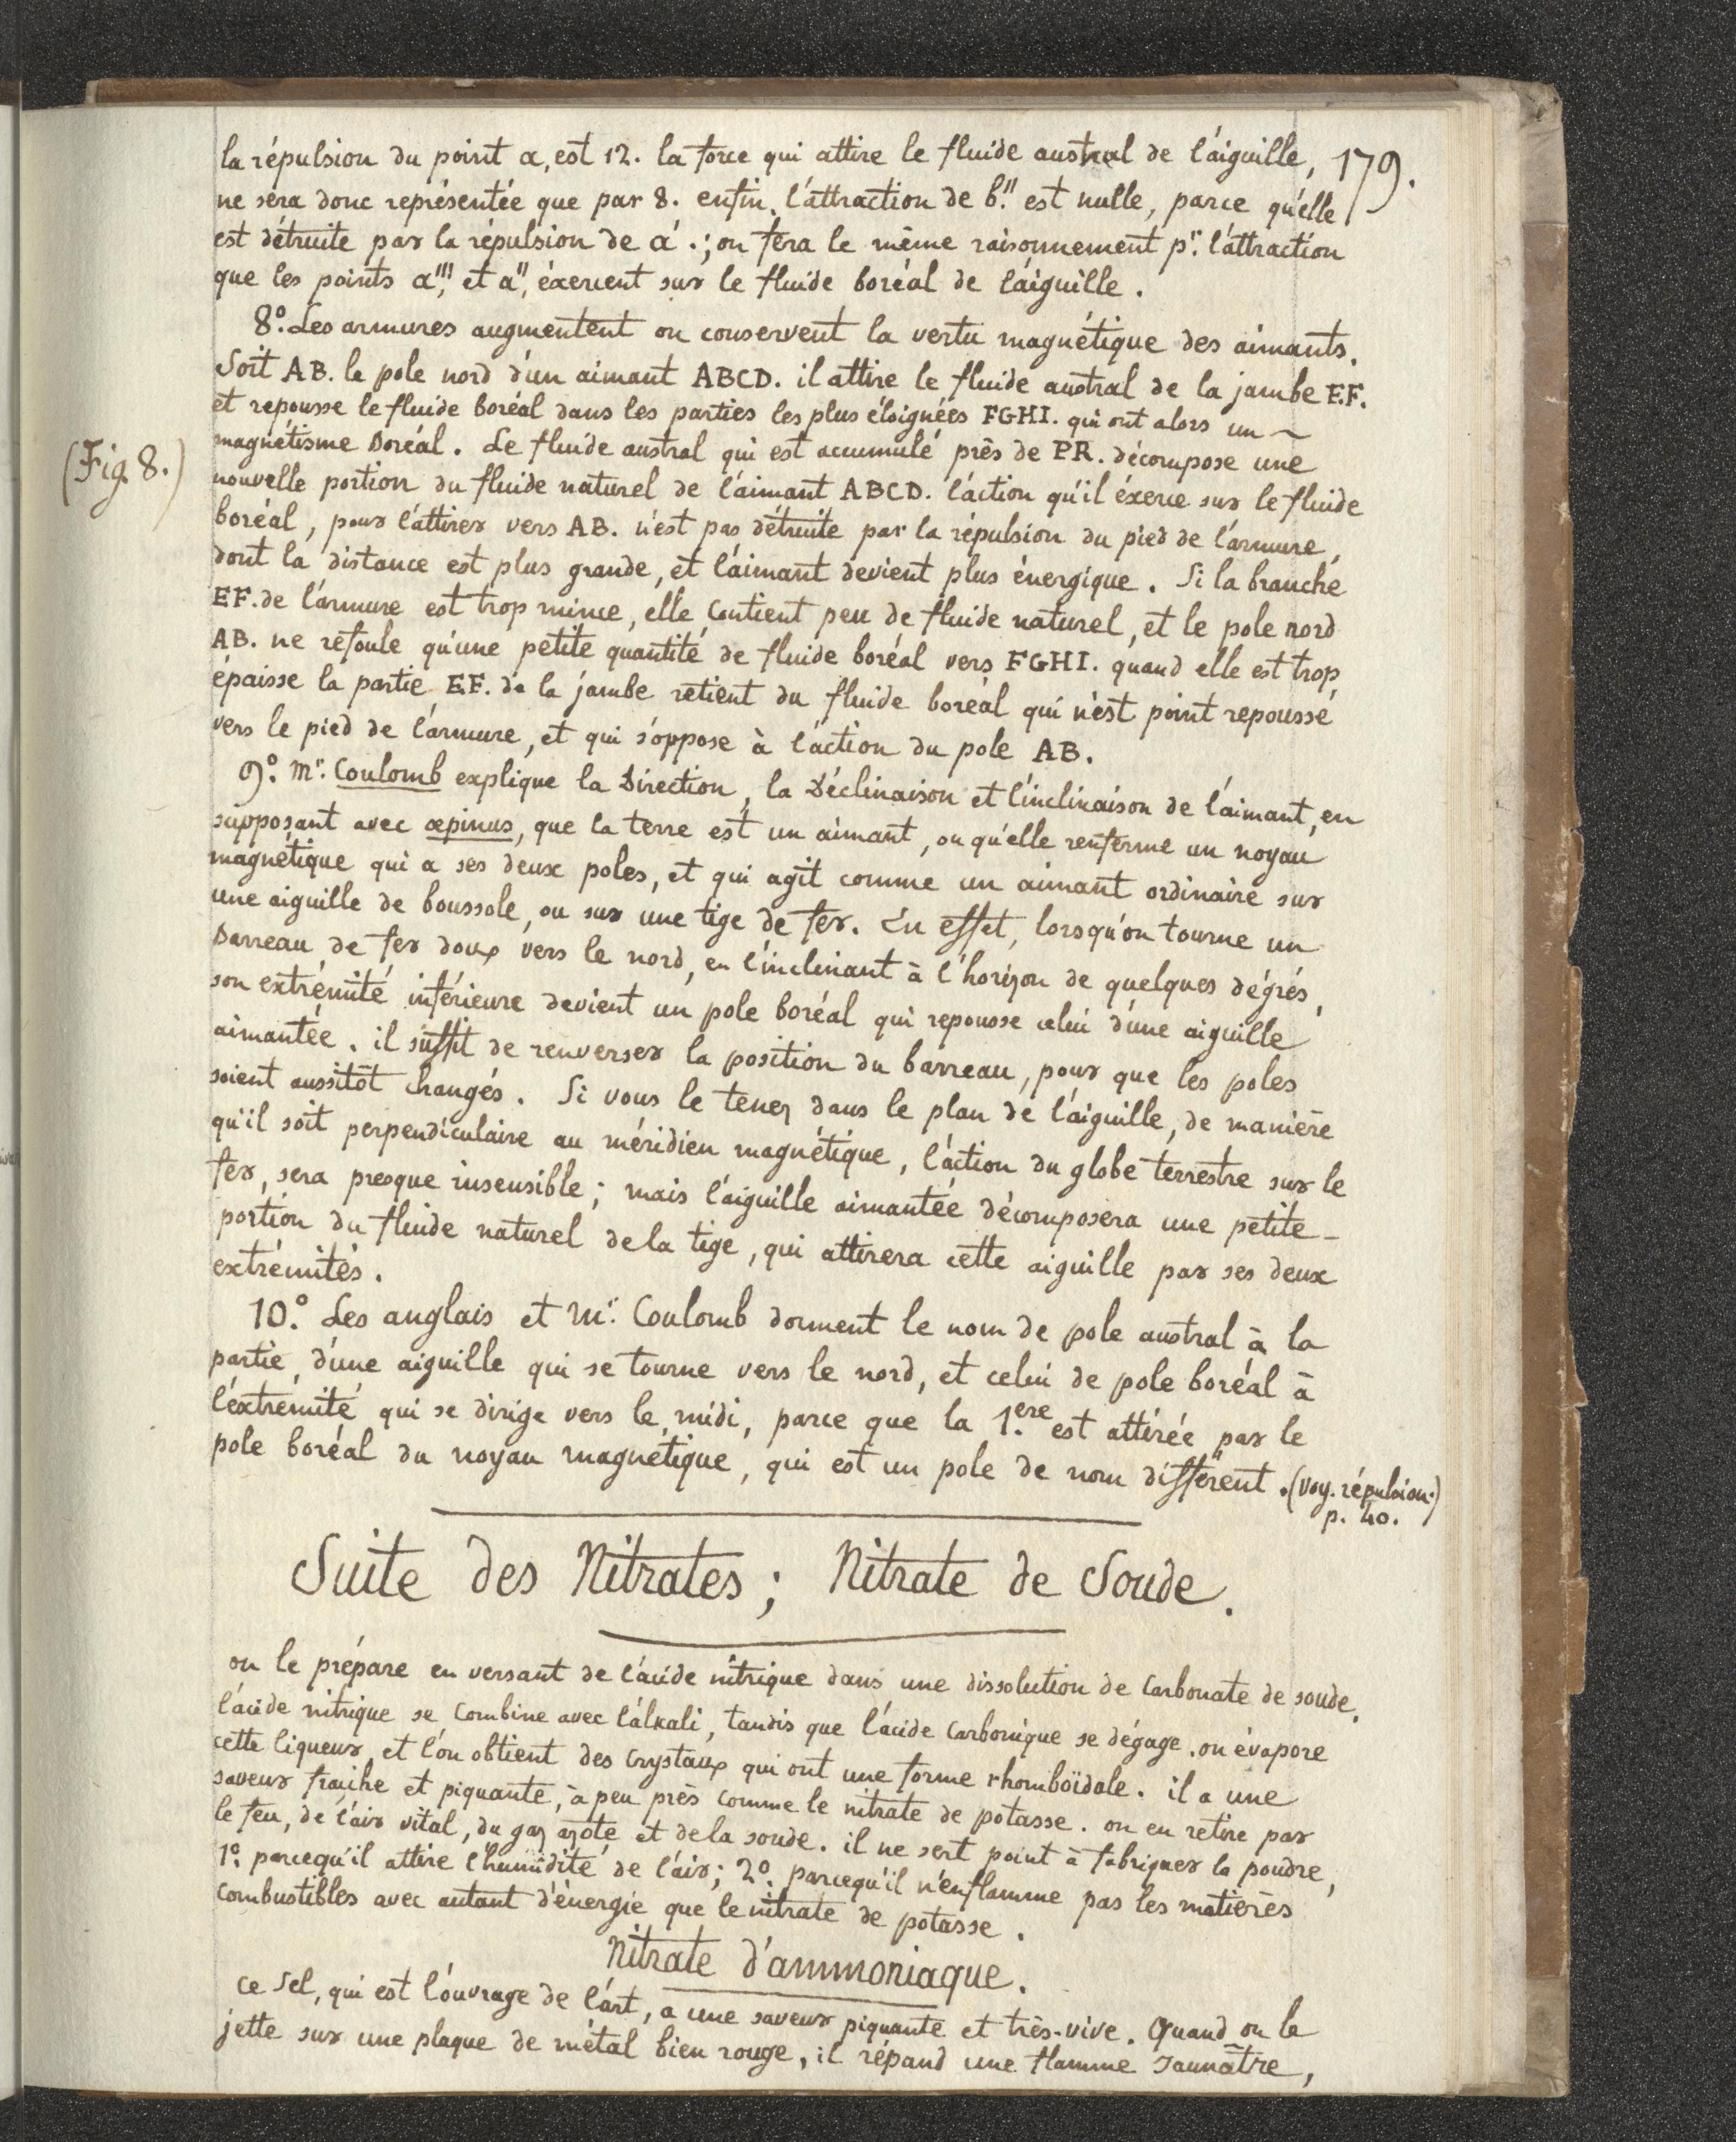 la répulsion du point a, est 12. la force qui attire le fluide austral de l'aiguille, 179.
ne sera donc représentée que par 8. enfin, l'attraction de b" est nulle, parce qu'elle
est détruite par la répulsion de a'.; on fera le même raisonnement pr. l'attraction
que les points a''', et a", éxercent sur le fluide boréal de l'aiguille.
8.° Les armures augmentent ou conservent la vertu magnétique des aimants.
Soit AB. le pole nord d'un aimant ABCD. il attire le fluide austral de la jambe EF.
et repousse le fluide boréal dans les parties les plus éloignées FGHI. qui ont alors un ~
magnétisme Boréal. Le fluide austral qui est accumulé près de PR. décompose une
(Fig. 8.)
nouvelle portion du fluide naturel de l'aimant ABCD. l'action qu'il éxerce sur le fluide
boréal, pour l'attirer vers AB. n'est pas détruite par la répulsion du pied de l'armure,
dont la distance est plus grande, et l'aimant devient plus énergique. Si la branche
EF. de l'armure est trop mince, elle Contient peu de fluide naturel, et le pole nord
AB. ne refoule qu'une petite quantité de fluide boréal vers FGHI. quand elle est trop
épaisse la partie EF. de la jambe retient du fluide boréal qui n'est point repoussé
vers le pied de l'armure, et qui s'oppose à l'action du pole AB.
9.° Mr. Coulomb explique la Direction, la Déclinaison et l'inclinaison de l'aimant, en
supposant avec æpinus, que la terre est un aimant, ou qu'elle renferme un noyau
magnétique qui a ses deux poles, et qui agit comme un aimant ordinaire sur
une aiguille de boussole, ou sur une tige de fer. En effet, lorsqu'on tourne un
Barreau de fer doux vers le nord, en l'inclinant à l'horizon de quelques dégrés,
son extrémité inférieure devient un pole boréal qui repousse celui d'une aiguille
aimantée. il suffit de renverser la position du barreau, pour que les poles
soient aussitôt changés. Si vous le tenez dans le plan de l'aiguille, de manière
qu'il soit perpendiculaire au méridien magnétique, l'action du globe terrestre sur le
fer, sera presque insensible; mais l'aiguille aimantée décomposera une petite -
portion du fluide naturel de la tige, qui attirera cette aiguille par ses deux
extrémités.
10.° Les anglais et Mr. Coulomb donnent le nom de pole austral à la
partie, d'une aiguille qui se tourne vers le nord, et celui de pole boréal à
l'extrémité qui se dirige vers le midi, parce que la 1.ere est attirée par le
pole boréal du noyau magnétique, qui est un pole de nom différent. (Voy. répulsion.)
p. 40.
Suite des Nitrates; Nitrate de Soude.
on le prépare en versant de l'acide nitrique dans une dissolution de Carbonate de soude.
l'acide nitrique se Combine avec l'alkali, tandis que l'acide Carbonique se dégage. on évapore
cette liqueur, et l'on obtient des Crystaux qui ont une forme rhomboïdale. il a une
saveur fraiche et piquante, à peu près comme le nitrate de potasse. on en retire par
le feu, de l'air vital, du gaz azote et de la soude. il ne sert point à fabriquer la poudre,
1.° parcequ'il attire l'humidité de l'air; 2.° parcequ'il n'enflamme pas les matières
Combustibles avec autant d'énergie que le nitrate de potasse.
Nitrate d'ammoniaque.
Ce Sel, qui est l'ouvrage de l'art, a une saveur piquante et très-vive. Quand on le
jette sur une plaque de métal bien rouge, il répand une flamme Jaunâtre,